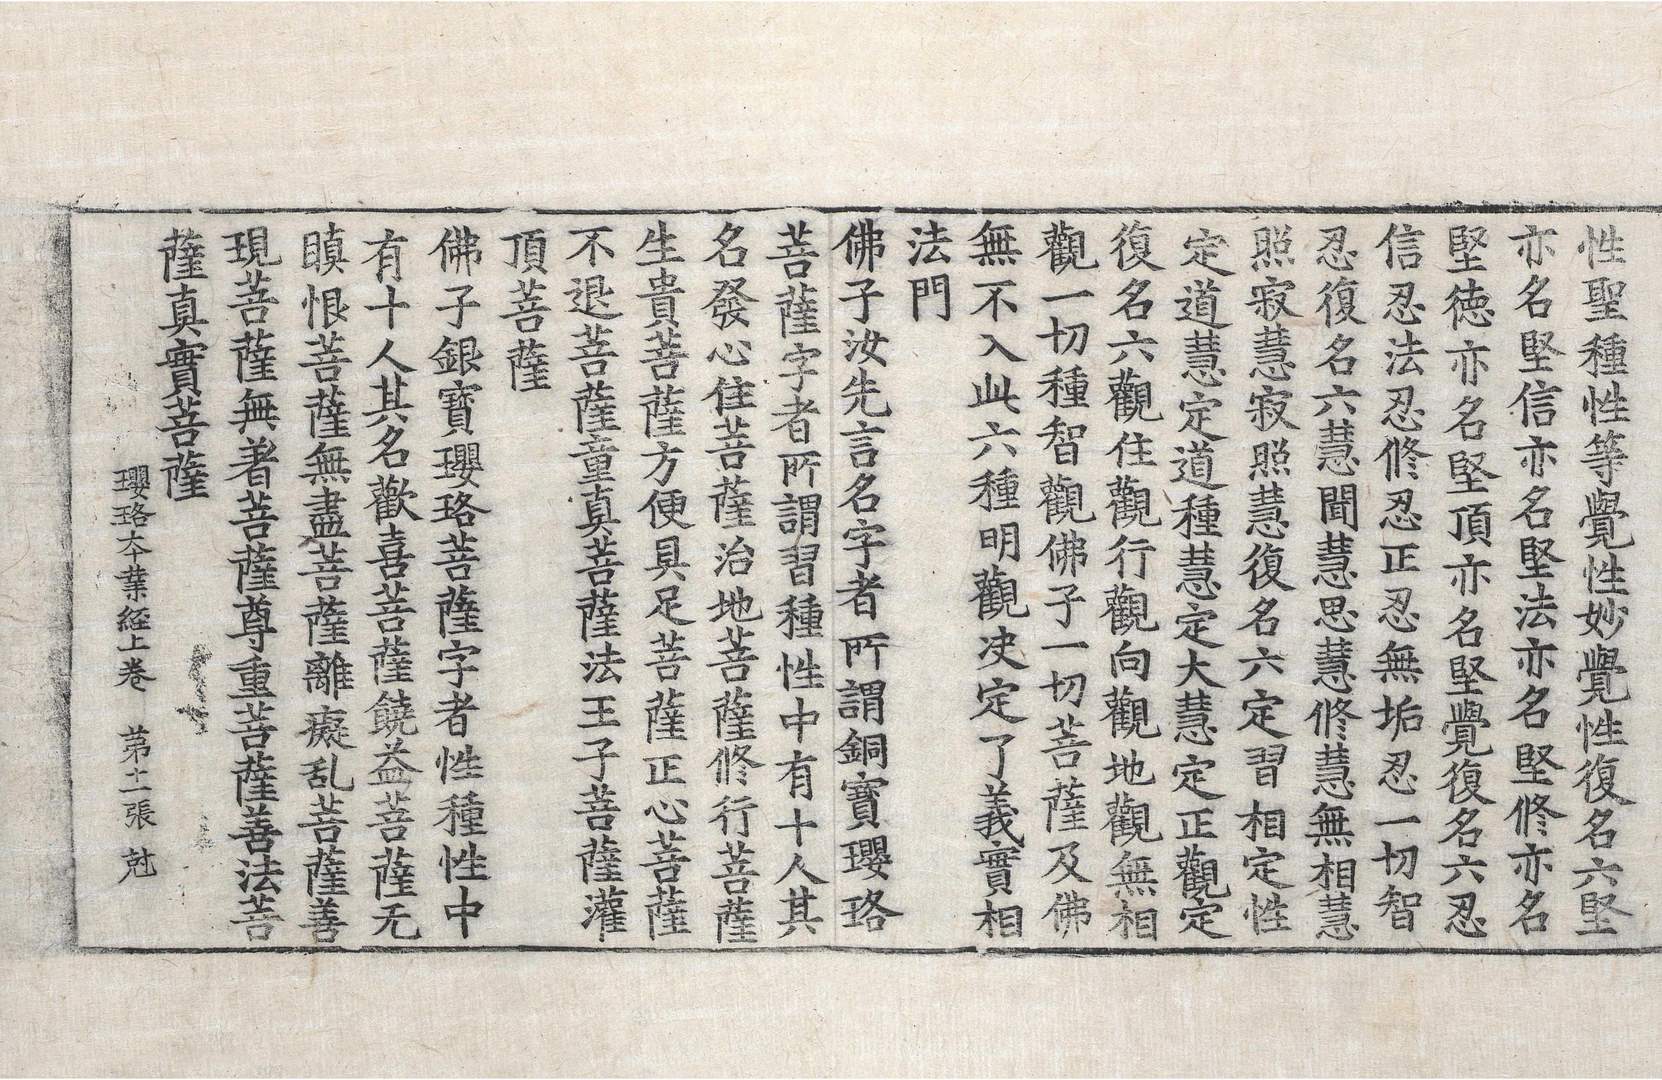 性聖種性等覺性妙覺性復名六堅
亦名堅信亦名堅法亦名堅修亦名
堅徳亦名堅頂亦名堅覺復名六忍
信忍法忍修忍正忍無垢忍一切智
忍復名六慧聞慧思慧修慧無相慧
照寂慧寂照慧復名六定習相定性
定道慧定道種慧定大慧定正觀定
復名六觀住觀行觀向觀地觀無相
觀一切種智觀佛子一切菩薩及佛
無不入此六種明觀决定了義實相
法門
佛子汝先言名字者所謂銅寶瓔珞
菩薩字者所謂習種性中有十人其
名發心住菩薩治地菩薩修行菩薩
生貴菩薩方便具足菩薩正心菩薩
不退菩薩童真菩薩法王子菩薩灌
頂菩薩
佛子銀寶瓔珞菩薩字者性種性中
有十人其名歡喜菩薩饒益菩薩无
瞋恨菩薩無盡菩薩離癡乱菩薩善
現菩薩無著菩薩尊重菩薩善法菩
薩真實菩薩
瓔珞本業経上卷 第十二張 尅